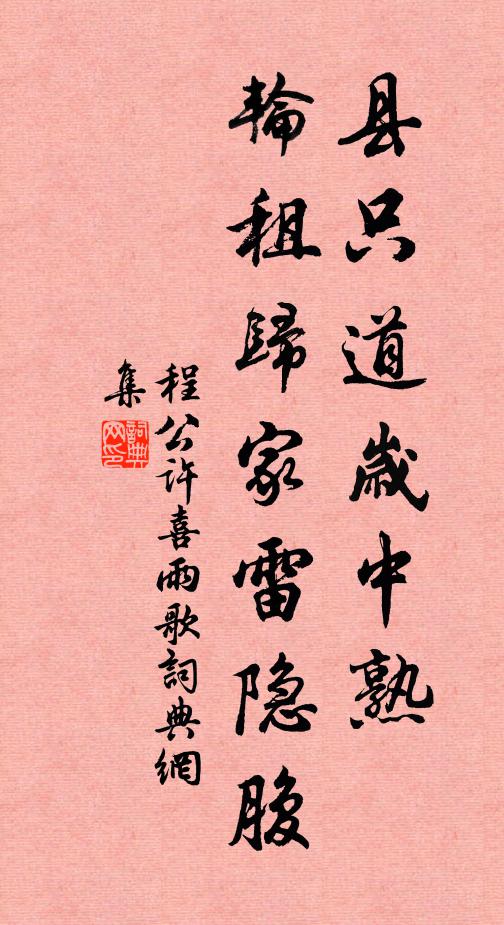 县只道歳中熟
輪租歸家雷隐腹
程公许喜雨歌詞典網
集
詞典网印